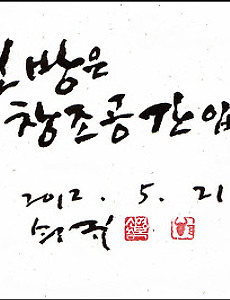 방은
창조공간입
2012. 5. 21